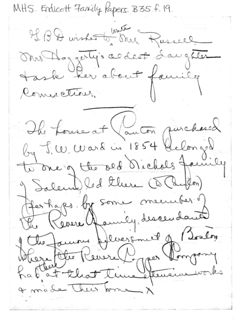 MHS. Endicott Family Papers B35 f.19
wishes to write Mrs Russell
Mrs Haggerty's oldest daughter
& ask her about family
connections.
The house at Canton purchased
by T. W. Ward in 1854 belonged
to one of the old Nichols family
of Salem, led there (to Canton)
perhaps by some member of
the Revere family, descendants
of the famous of Boston
where the Revere Copper Company
had at that time works
& made their home X
there